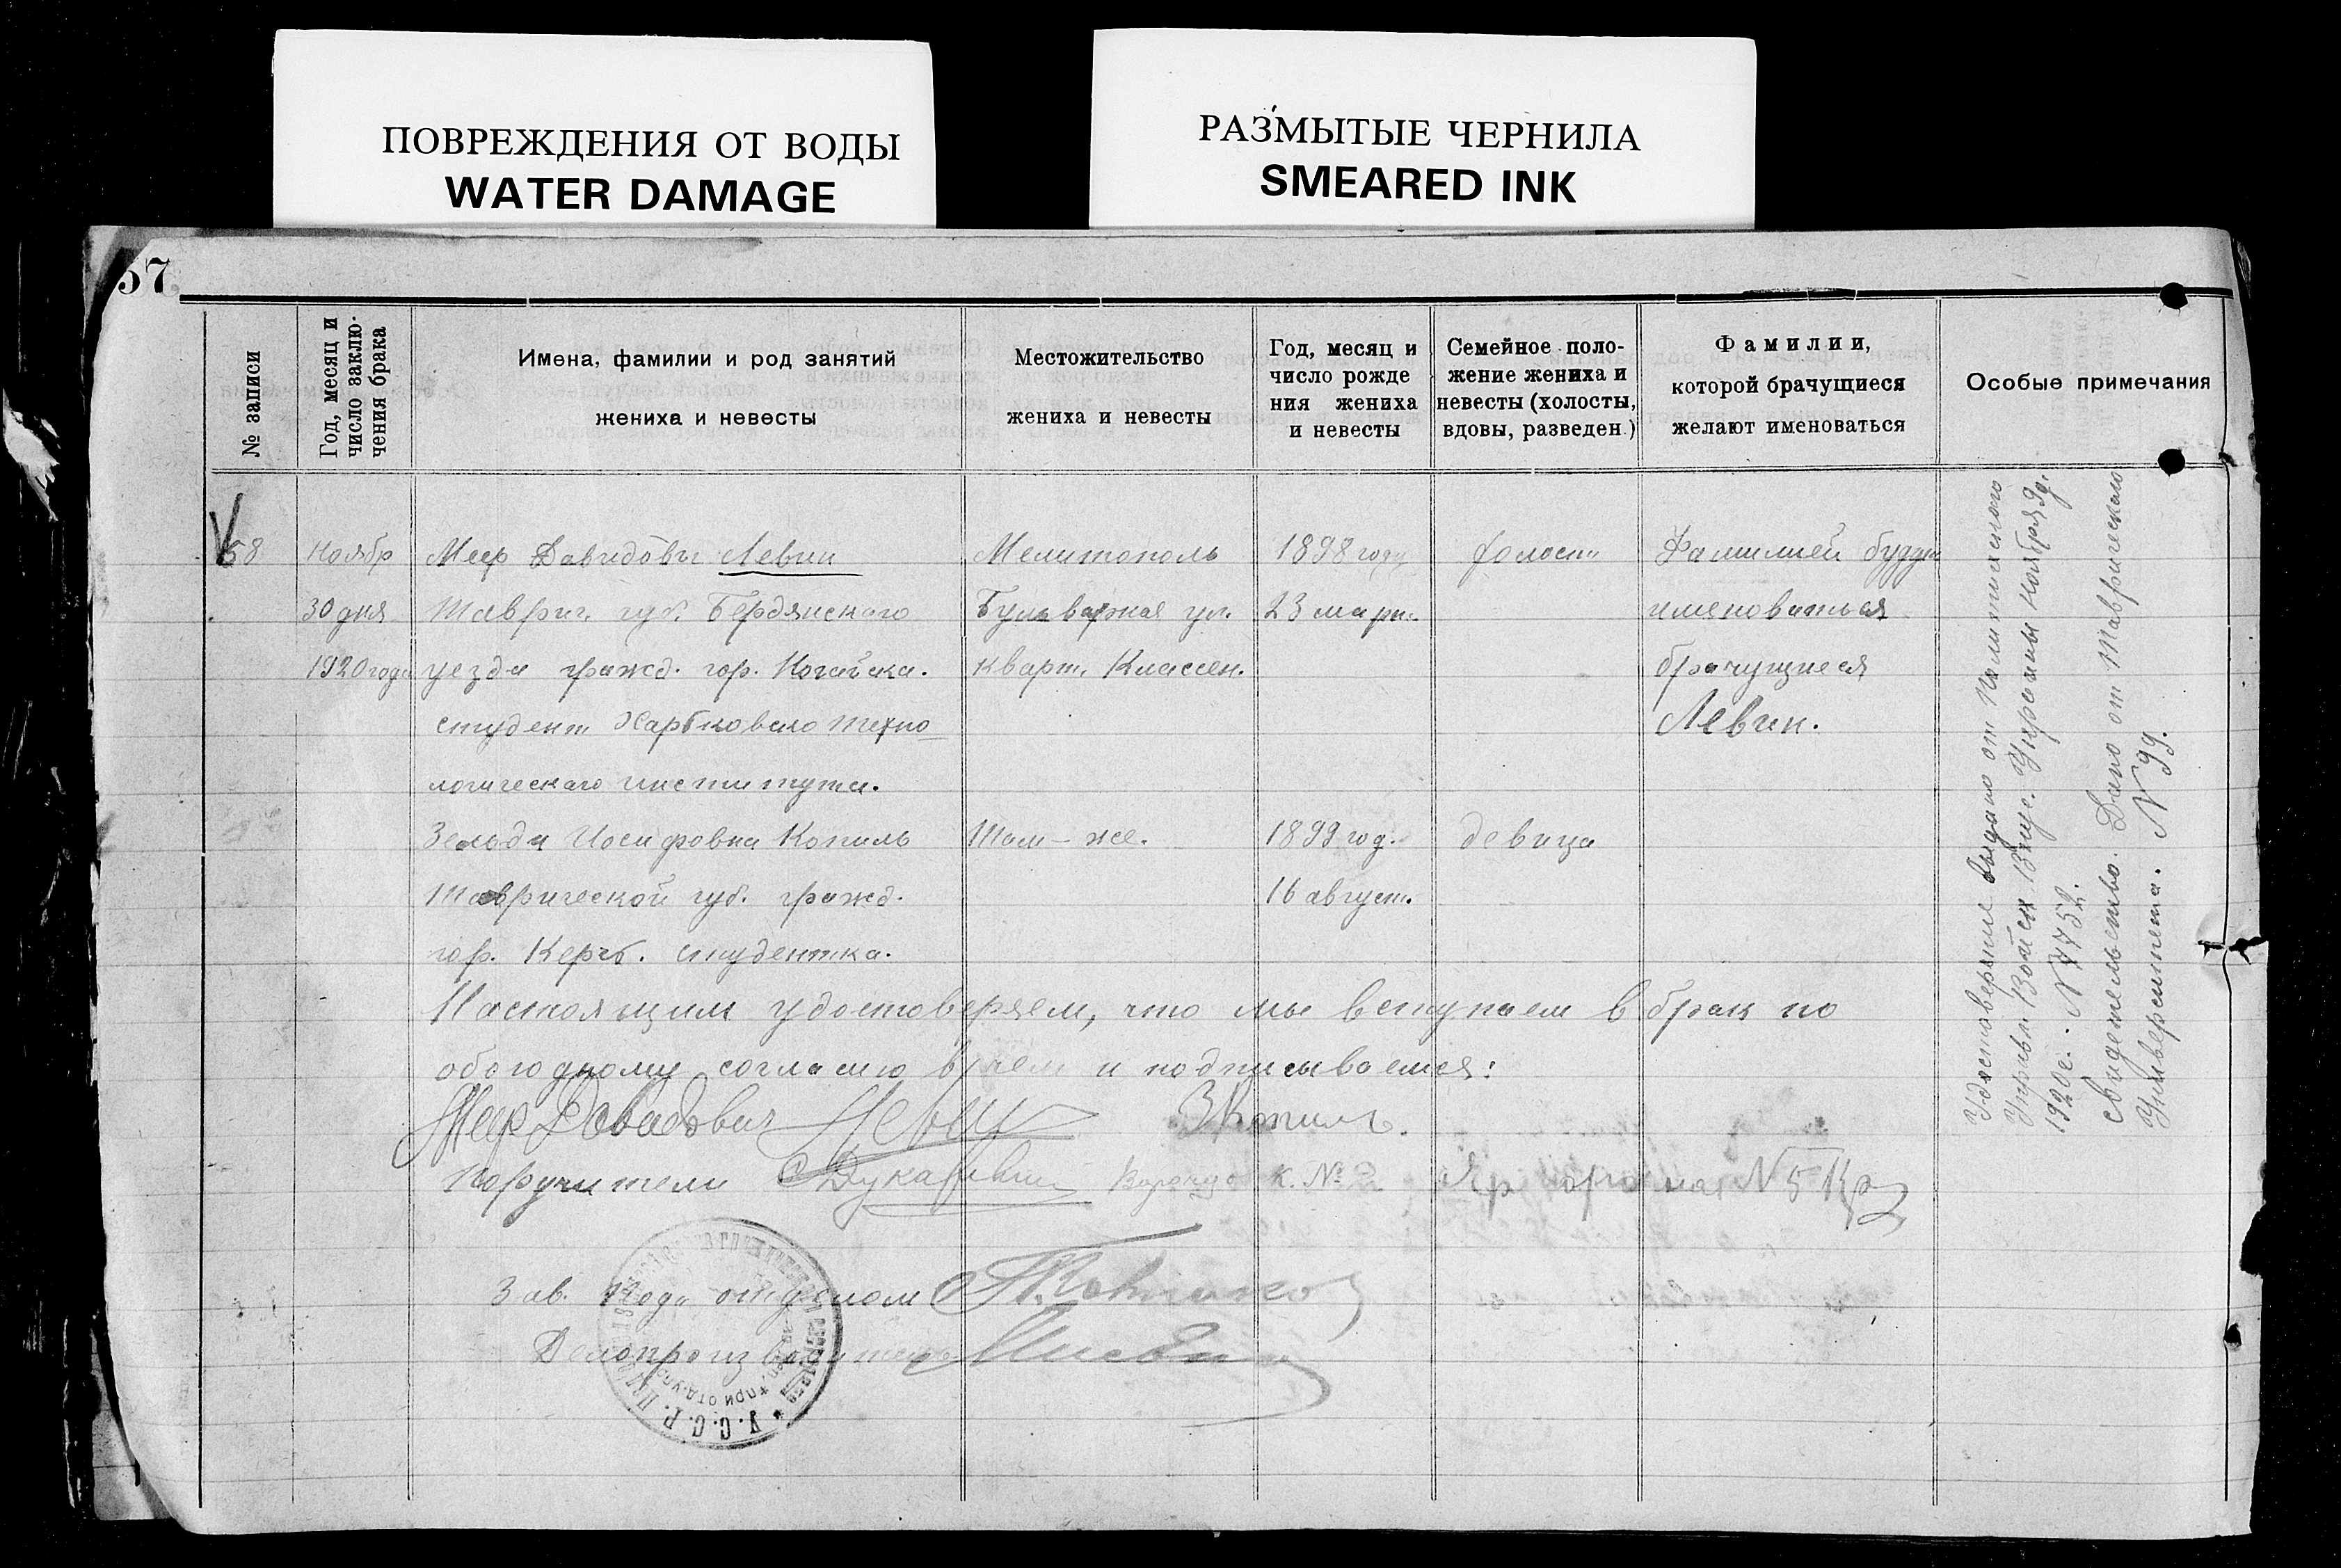 ПОВРЕЖДЕНИЯ ОТ ВОДЫ
WATER DAMAGE
РАЗМЫТЫЕ ЧЕРНИЛА
SMEARED INK
57
№ записи
Год, месяц и
число заклю-
чения брака
Имена, фамилии и род занятий
жениха и невесты
Местожительство
жениха и невесты
Год, месяц и
число рожде
ния жениха
и невесты
Семейное поло-
жение жениха и
невесты (холосты,
вдовы, разведен.)
Фамилии,
которой брачущиеся
желают именоваться
Особые примечания
58
Ноябр
30 дня
1920 года
Меер Давидовы Левин
Таврич. губ. Бердянскаго
уезда гражд. гор. Ногайска.
студент Харьковскаго Техно
логическаго института.
Мелитополь
Бульварная ул.
кварт. Классен.
1898 году
23 март.
холост
Фамилией будут
именоваться
брачущиеся
Левин.
Зельда Иосифовна Копиль
Таврической губ. гражд.
гор. Керчь. студентка.
Там-же.
1899 год.
16 август.
девица
Настоящим удостоверяем, что мы вступаем в брак по
обоюдному согласию и подписываемся:
Меер Давидович Левин ЗКопиль.
Поручители К. №
№ 5
Зав. Подотделом
Делопроизводитель
У.С.С.Р.
Удостоверение выдано от Политического
Управ. Войск Внут. Украины ноября 9 д.
1920 г. № 7752.
свидетельство. Дано от Таврического
Университета. № 99.